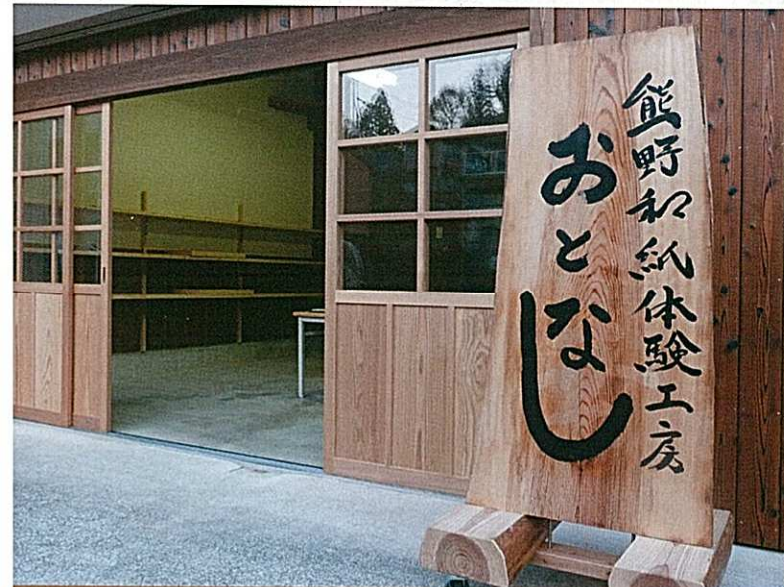 熊野和紙体験工房
おとなし